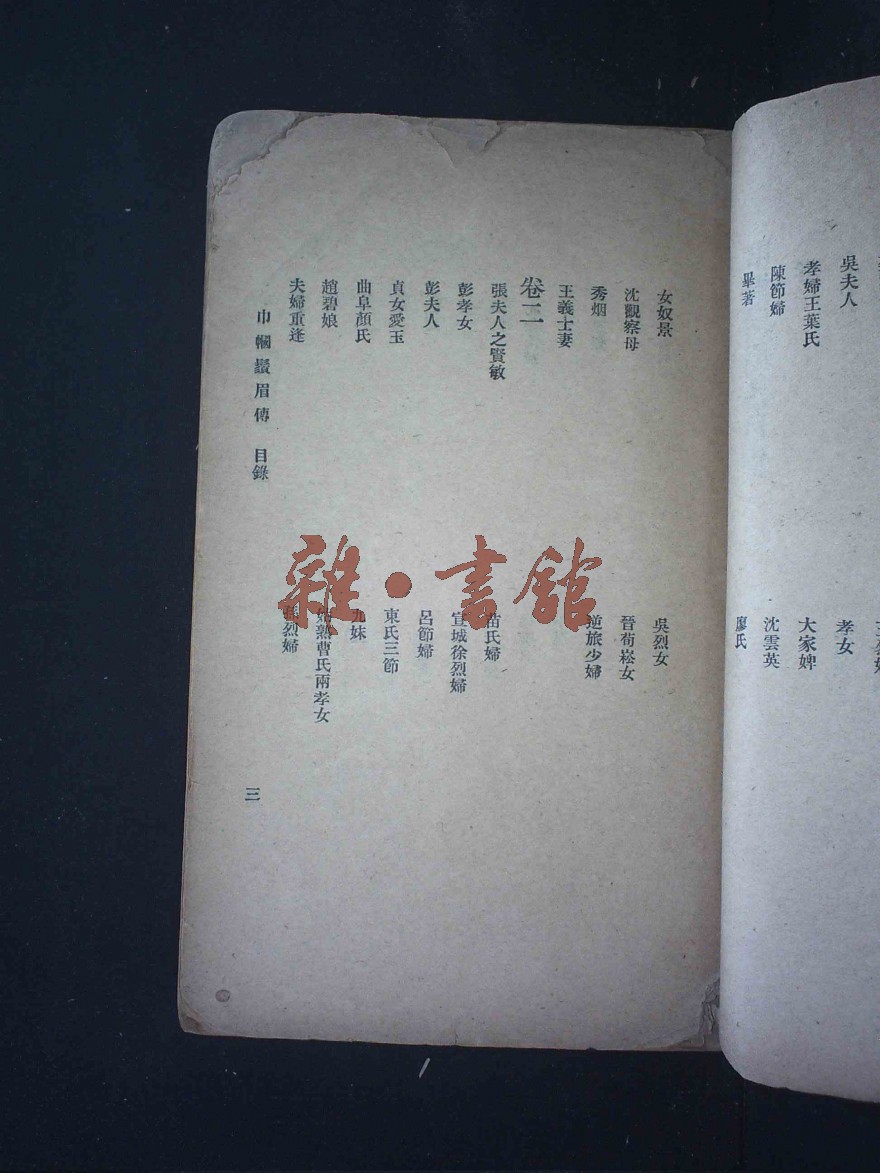 吳夫人　孝女
孝婦王葉氏　大家婢
陳節婦　沈雲英
畢著　廖氏
女奴景　吳烈女
沈觀察母　晉荀崧女
秀烟　逆旅少婦
王義士妻
卷二
張夫人之賢敏　苗氏婦
彭孝女　宣城徐烈婦
彭夫人　呂節婦
貞女愛玉　東氏三節
曲阜顏氏　九妹
趙碧娘　姑熟曹氏兩孝女
夫婦重逢　烈婦
巾幗鬚眉傳　目錄　三
雜·書館